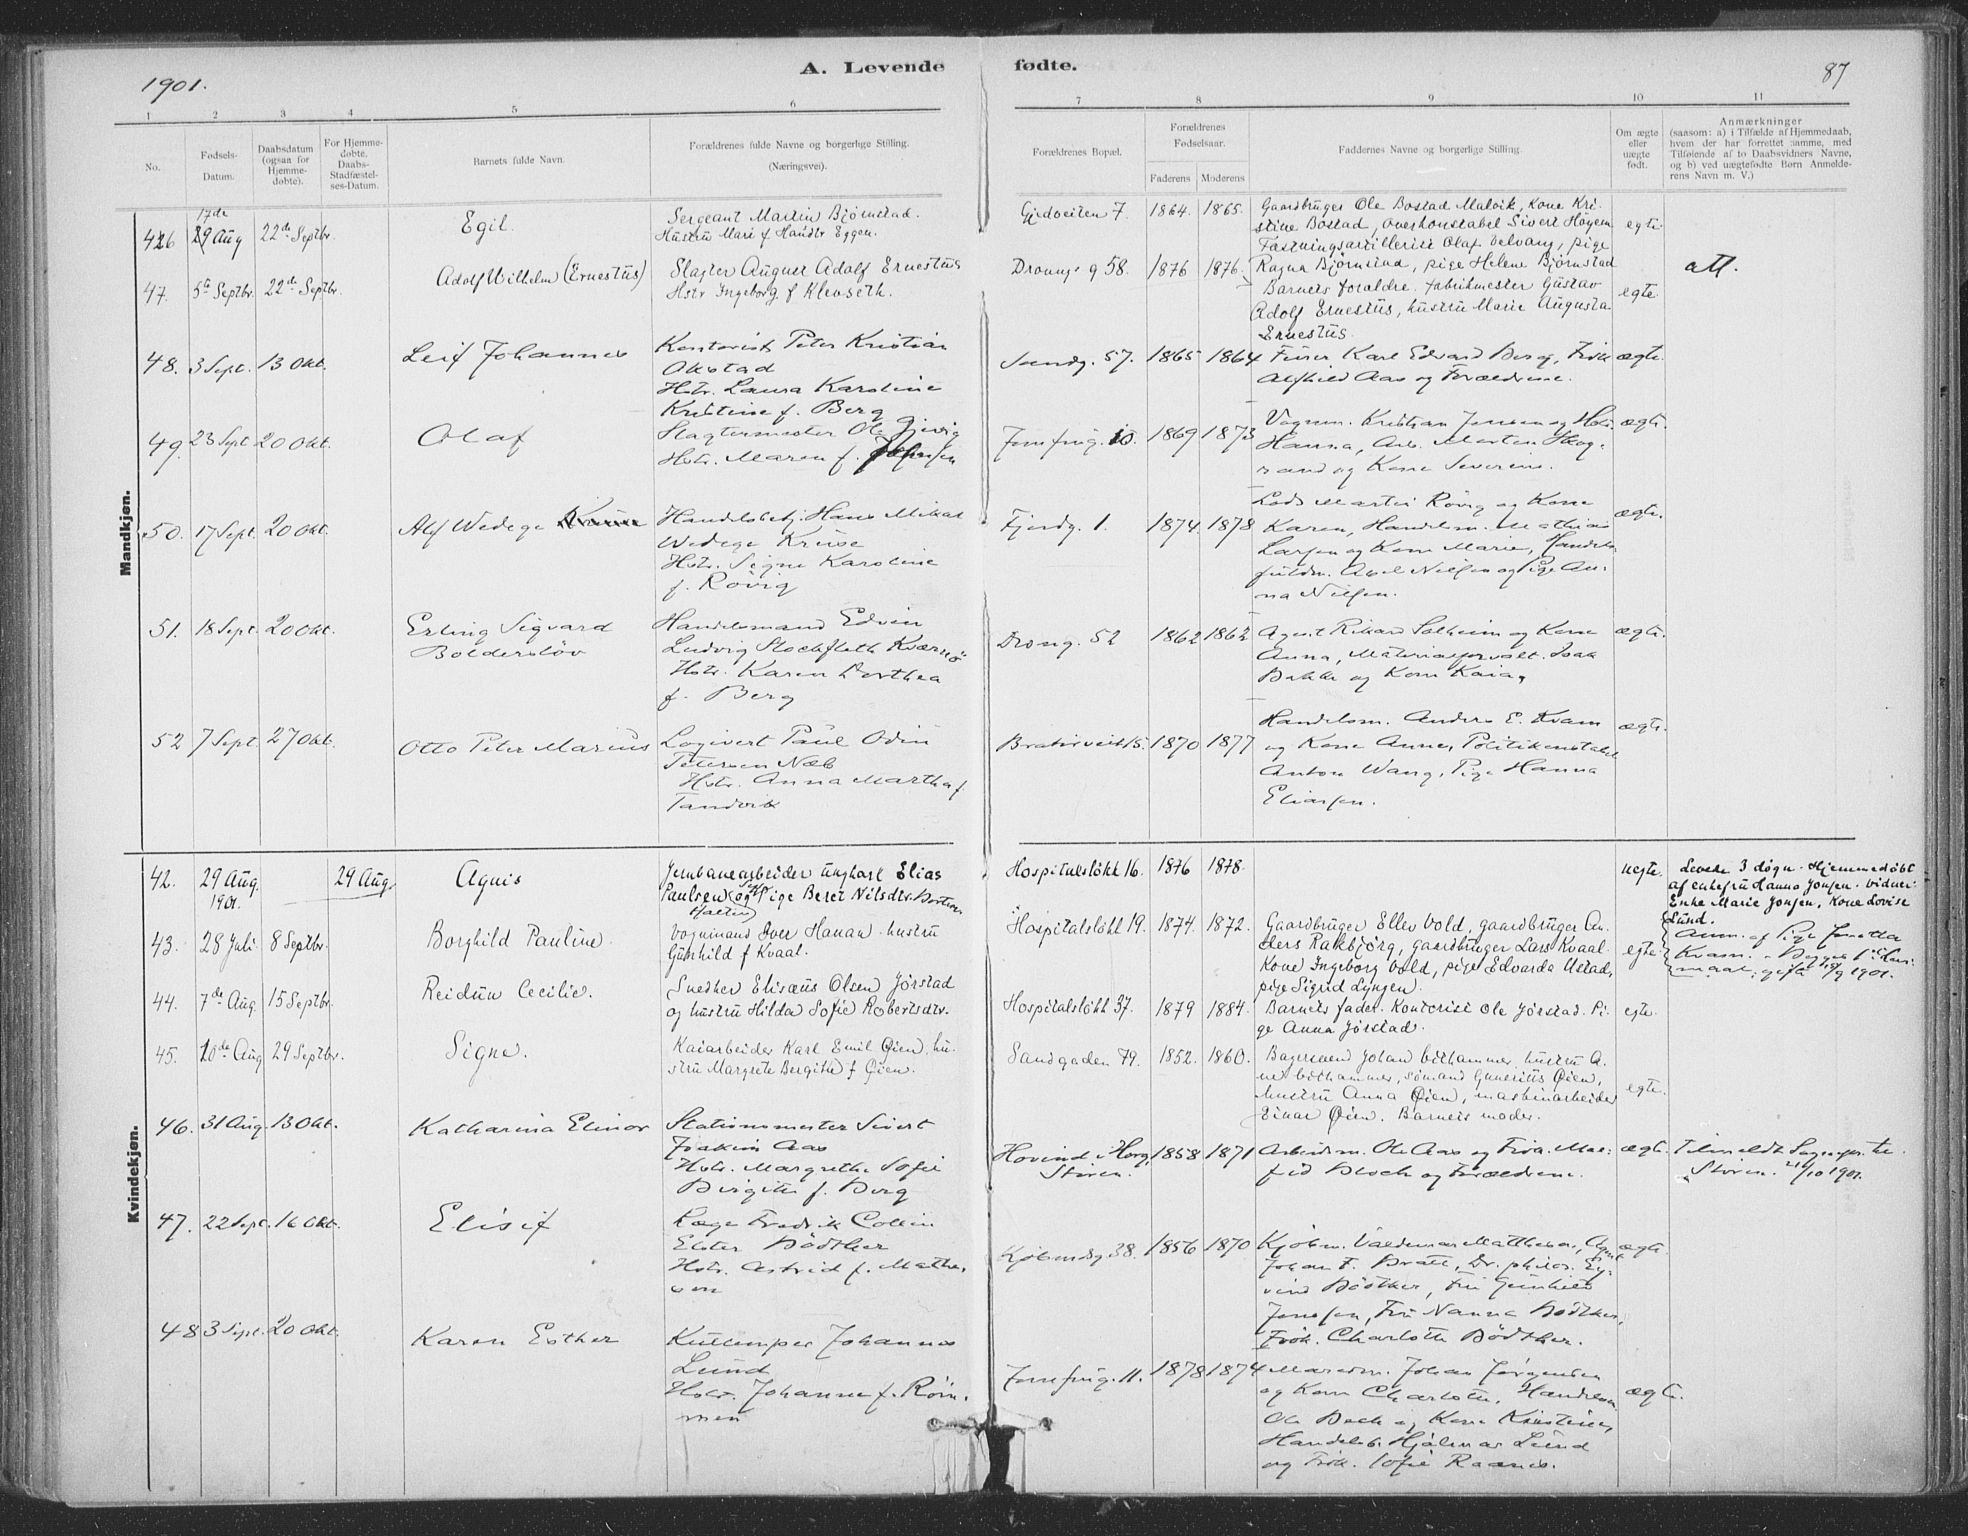 1901.
A. Levende fødte.
87
1 2 3 4 5 6 7 8 9 10 11
No.
Fødsels-Datum.
Daabsdatum (ogsaa for Hjemmedøbte).
For Hjemmedøbte. Daabs-Stadfæstelses-Datum.
Barnets fulde Navn.
Forældrenes fulde Navne og borgerlige Stilling. (Næringsvei).
Forældrenes Bopæl.
Forældrenes Fødselsaar.
Faderens Moderens
Faddernes Navne og borgerlige Stilling.
Om ægte eller uægte født.
Anmærkninger
(saasom: a) i Tilfælde af Hjemmedaab,
hvem der har forrettet samme, med
Tilføiende af to Daabsvidners Navne,
og b) ved uægtefødte Børn Anmelderens Navn m. V.)
Mandkjøn.
17de
426 29 Aug 22de Septbr. Egil.
Sergeant Martin Bjørnstad.
Hustru Mari f Handtr Eggen.
Gjedveiten 7. 1864. 1865.
Gaardbruger Ole Bostad Malvik, Kone Kri-
stine Bostad, overkonstabel Sivert Høyem
Fæstningsartillerist Olaf Velvang, pige
Ragna Bjørnstad, pige Helene Bjørnstad
egte.
47. 5te Septbr. 22de Septbr. Adolf Wilhelm (Ernestus)
Slagter August Adolf Ernestus
Hstr Ingeborg f Klevseth.
Dronng g 58. 1876 1876.
Barnets forældre. Fabrikmester Gustav
Adolf Ernestus, hustru Marie Augusta
Ernestus.
egte.
att.
48. 3 Sept. 13 Okt. Leif Johannes
Kontorist Peter Kristian
Okstad
Hstr. Laura Karoline
Kristine f. Berg
Sandg. 57. 1865 1864
Furer Karl Edvard Berg, Frøk
Alfhild Aas og Forældrene.
ægte.
49. 23 Sept 20 Okt. Olaf
Slagtermester Ole Gjevig
Hstr. Maren f.
Jomfrug. 10. 1869 1873
Vognm. Kristian Jensen og Hstr.
Hanna, Arb. Martin Skog-
rand og Kone Severine.
ægte.
50. 17 Sept. 20 Okt. Alf Wedege
Handelsbetj. Hans Mikal
Wedege Kruse
Hstr. Signe Karoline
f. Rövig
Fjordg. 1. 1874. 1878
Lods Martin Rövig og Kone
Karen, Handelsm. Mathias
Larsen og Kone Marie, Handels-
fuldm. Axel Nilsen og Pige An-
na Nilsen.
ægte.
51. 18 Sept. 20 Okt. Erling Sigvard
Bolderslöv
Handelsmand Edvin
Ludvig Stockfleth Kværnö
Hstr. Karen Dorthea
f. Berg
Drong. 52 1862 1862
Agent Rikard Solheim og Kone
Anna, Materialforvalt. Isak
Bakke og Kone Kaia.
ægte.
52 7 Sept. 27 Okt. Otto Peter Marius
Logivert Paul Odin
Petersen Næb
Hstr. Anna Martha f.
Tandvik
Brattörveit 15. 1870 1877
Handelsm. Anders E. Kvam
og Kone Anne, Politikonstabel
Anton Wang, Pige Hanna
Eliassen.
ægte.
Kvindekjøn.
42. 29 Aug. 1901. 29 Aug. Agnis
Jernbanearbeider ungkarl Elias
Paulsen og Pige Beret Nilsdtr.
Hospitalsløkk 16. 1876 1878.
uegte.
Levede 3 døgn. Hjemmedøbt
af enkefru Hanna Jonsen. vidner:
Enke Marie Jonsen, Kone Lovise
Lund.
Anm. af Pige
Kvam.
43. 28 Juli. 8 Septbr. Borghild Pauline.
Vognmand Iver Hanan. hustru
Gunhild f Kvaal.
Hospitalsløkk 19. 1874. 1872.
Gaardbruger Ellev Vold, gaardbruger An-
ders Rakbjörg, gaardbruger Lars Kvaal
Kone Ingeborg Vold, pige Edvarda Ustad,
pige Sigrid Lyngen.
egte.
44. 7de Aug. 15 Septbr. Reidun Cecilie.
Snedker Elisæus Olsen Jørstad
og hustru Hilda Sofie Robertsdtr.
Hospitalsløkk 37. 1879 1884.
Barnets fader. Kontorist Ole Jørstad. Pi-
ge Anna Jørstad.
egte.
45. 10de Aug 29 Septbr. Signe.
Kaiarbeider Karl Emil Øien, hu-
stru Margrete Bergithe f Øien.
Sandgaden 79. 1852. 1860.
Bagersvend Johan
sømand Gunerius Øien,
hustru Anna Øien, maskinarbeider
Einar Øien. Barnets moder.
egte.
46. 31 Aug. 13 Okt. Katharina Elinor
Stationsmester Sivert
Joakim Aas
Hstr. Margrethe Sofie
Birgitte f. Berg
Hovind i Horg, Støren. 1858 1871
Arbeidsm. Ole Aas og Frøk. Mag-
og Forældrene.
ægte.
Tilmeldt Sognepr. til
Støren. 21/10 1901.
47. 22 Sept. 16 Okt. Elisif
Læge Fredrik Collin
Elster Bödtker
Hstr. Astrid f. Mathe-
sen
Kjöbmdg. 38. 1856 1870
Kjöbm. Valdemar Matthesen, Agent
Johan F. Bratt, Dr. philos. Ey-
vind Bödtker, Fru Gunhild
Fru Nanna Bödtker,
Frøk. Charlotte Bödtker.
ægte.
48 3 Sept. 20 Okt. Karen Esther
Johannes
Lund
Hstr. Johanne f.
Jomfrug. 11. 1878 1874
Johan Jørgensen
og Kone Charlotte, Handelsm.
Ole Beck og Kone Kristine,
Handelsb. Hjalmar Lund
og Frøk. Sofie Raanes.
ægte.